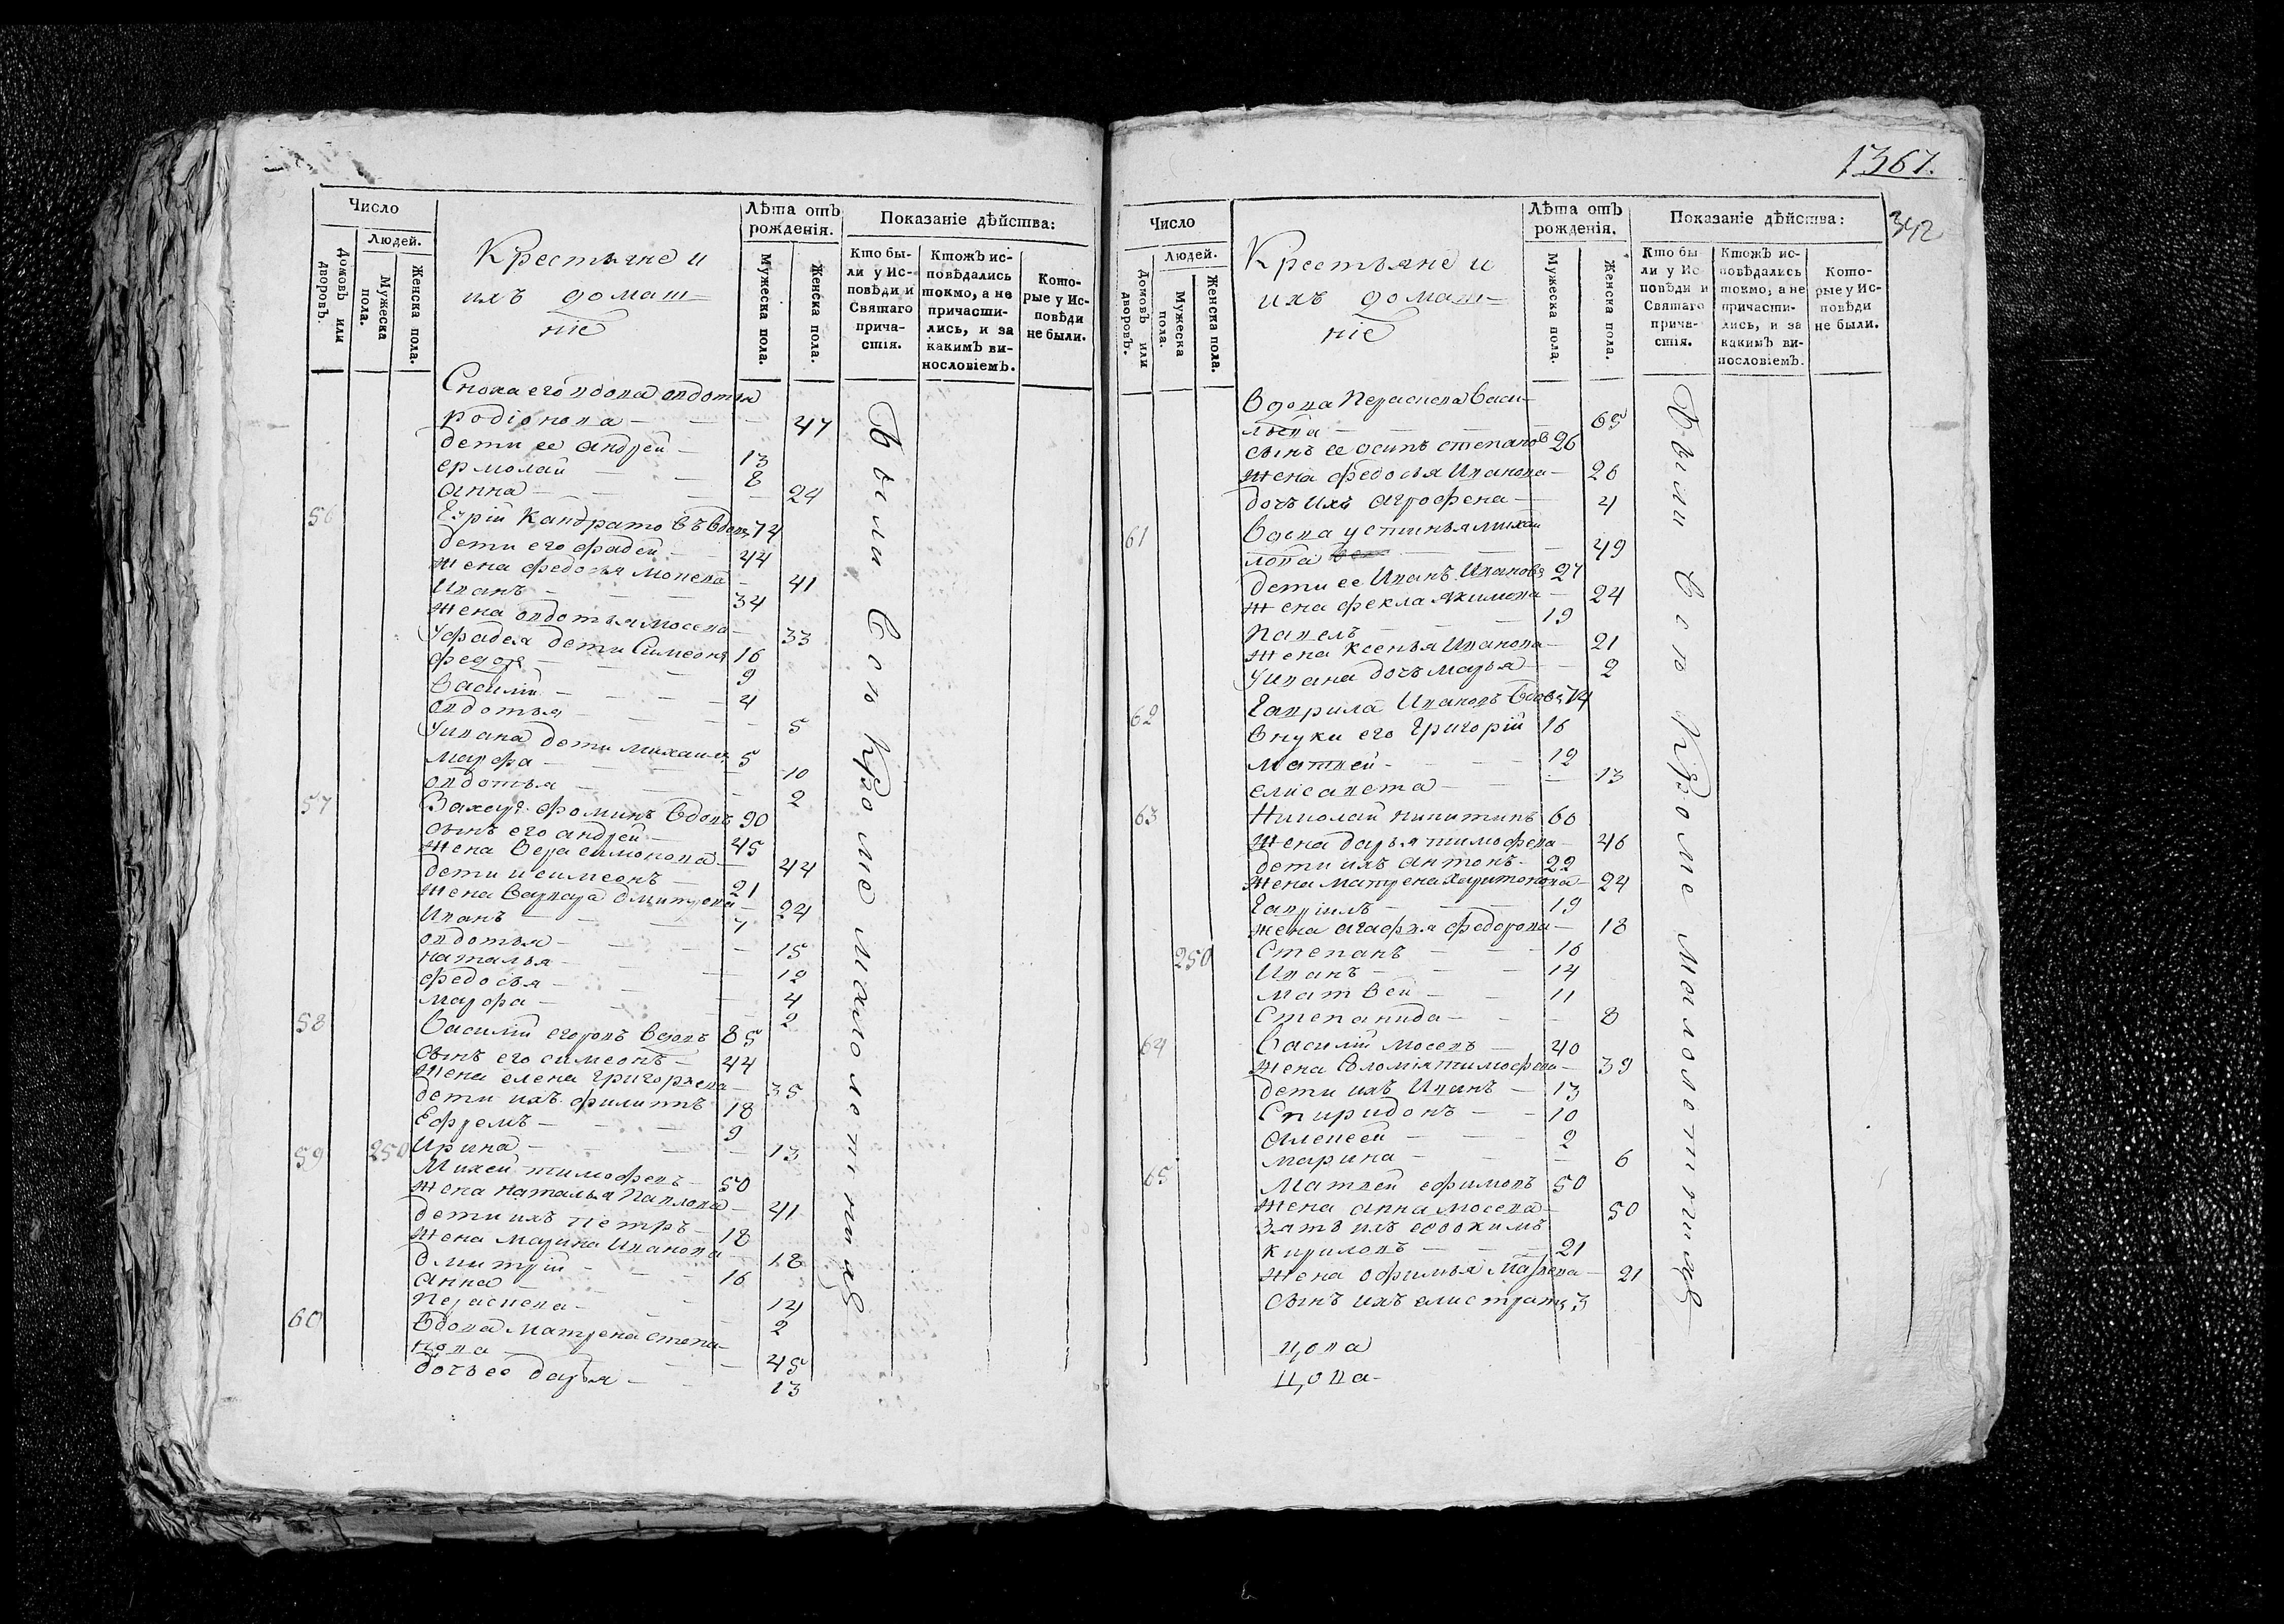 Число
Людей.
Домовъ или дворовъ.
Мужеска пола.
Женска пола.
Крестьяне и
ихъ домаш=
ніе
Лѣта отъ рожденія.
Мужеска пола.
Женска пола.
Показаніе дѣйства:
Кто бы-
ли у Ис-
повѣди и
Святаго
прича-
стія.
Ктожъ ис-
повѣдались
токмо, а не
причасти-
лись, и за
какимъ ви-
нословіемъ.
Кото-
рые у Ис-
повѣди
не были.
Сноха его вдова овдотья
родіонова 47
дети ее андрей 13
ермолай 8
анна 24
56 Егрій Кандратовъ вдовъ 74
дети его фадей 44
жена федосья мосеева 41
Иванъ 34
жена овдотья мосева 33
У фадея дети Симеонъ 16
федоръ 9
Василій 4
овдотья 5
У ивана дети михаилъ 5
марфа 10
овдотья 2
57 Захаръ фоминъ вдовъ 90
сынъ его андрей 45
жена вера симонова 44
дети и симеонъ 21
жена варвара дмитрева 24
Иванъ 7
овдотья 15
наталья 12
федосья 4
марфа 2
58 Василій егоровъ вдовъ 85
сынъ его симеонъ 44
жена елена григорьева 35
дети ихъ филиппъ 18
Ефремъ 9
Ирина 13
59 250 Михей тимофевъ 50
жена наталья павлова 41
дети ихъ петръ 18
жена марина Иванова 18
дмитрій 16
анна 14
Пераскева 2
60 Вдова матрена степа-
нова 45
дочь ее дарья 13
Были Все Кроме малолетнихъ
1367.
342
Число
Людей.
Домовъ или дворовъ.
Мужеска пола.
Женска пола.
Крестьяне и
ихъ домаш=
ніе
Лѣта отъ рожденія.
Мужеска пола.
Женска пола.
Показаніе дѣйства:
Кто бы
ли у Ис
повѣди и
Святаго
прича-
стія.
Ктожъ ис-
повѣдались
токмо, а не
причасти-
лись, и за
какимъ ви-
нословіемъ.
Кото-
рые у Ис-
повѣди
не были.
Вдова Пераскева Васи-
льева 65
сынъ ее осипъ степановъ 26
жена федосья Иванова 26
дочь ихъ агрофена 4
61 Вдова устинья михаи
лова 49
дети ее Иванъ Ивановъ 27
жена фекла якимова 24
Павелъ 19
жена ксенья Иванова 21
У ивана дочь марья 2
62 Гаврила Ивановъ вдовъ 74
внуки его Григорій 16
матвей 12
елисавета 13
63 Николай никитинъ 60
жена дарья тимофева 46
дети ихъ антонъ 22
жена матрена харитонова 24
Гавріилъ 19
жена агафья федорова 18
250 Степанъ 16
Иванъ 14
матвей 11
Степанида 8
64 Василій мосевъ 40
жена соломія тимофева 39
дети ихъ Иванъ 13
Спиридонъ 10
алексей 2
марина 6
65 Матвей ефимовъ 50
жена анна мосева 50
зять ихъ евдокимъ
кириловъ 21
жена офимья матвева 21
сынъ ихъ елистратъ 3
цова
цова
Были Все Кроме малолетнихъ